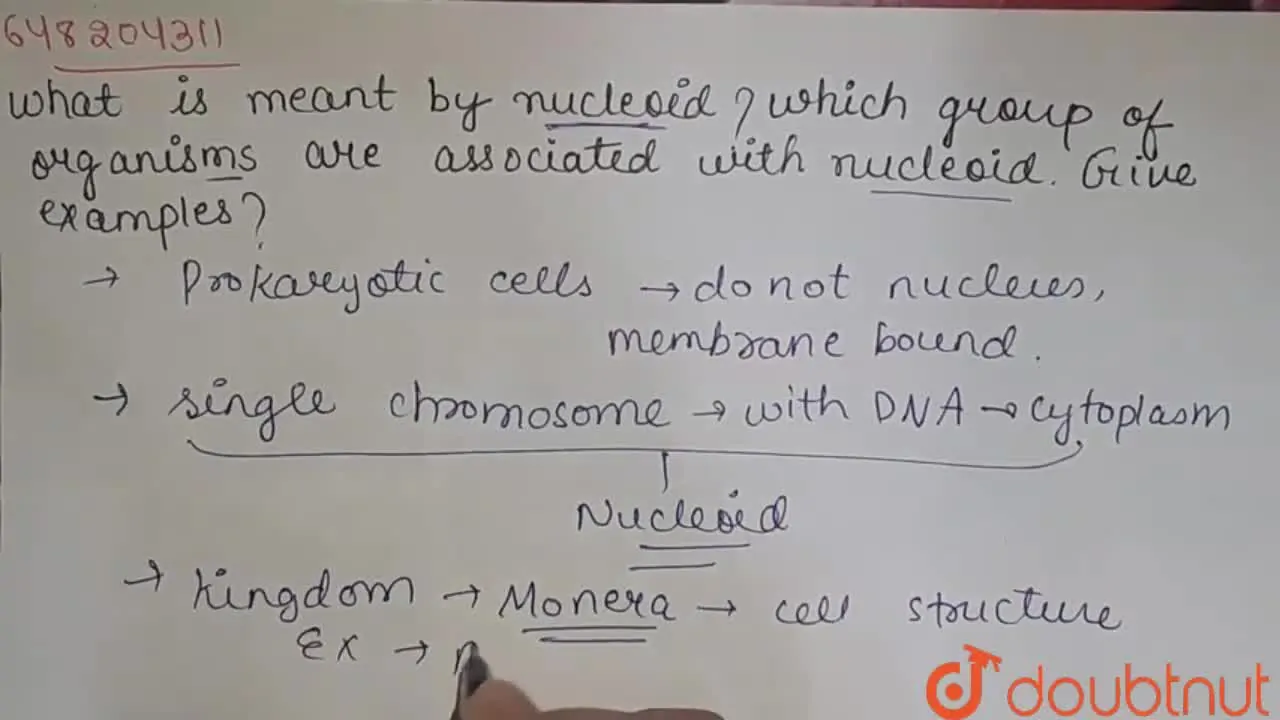 648204311
What is meant by nucleoid ? which group of
organisms are associated with nucleoid. Give
examples?
→ Prokaryotic cells → do not nucleus,
membrane bound.
→ single chromosome → with DNA → cytoplasm
Nucleoid
→ Kingdom → Monera → cell structure
Ex →
doubtnut